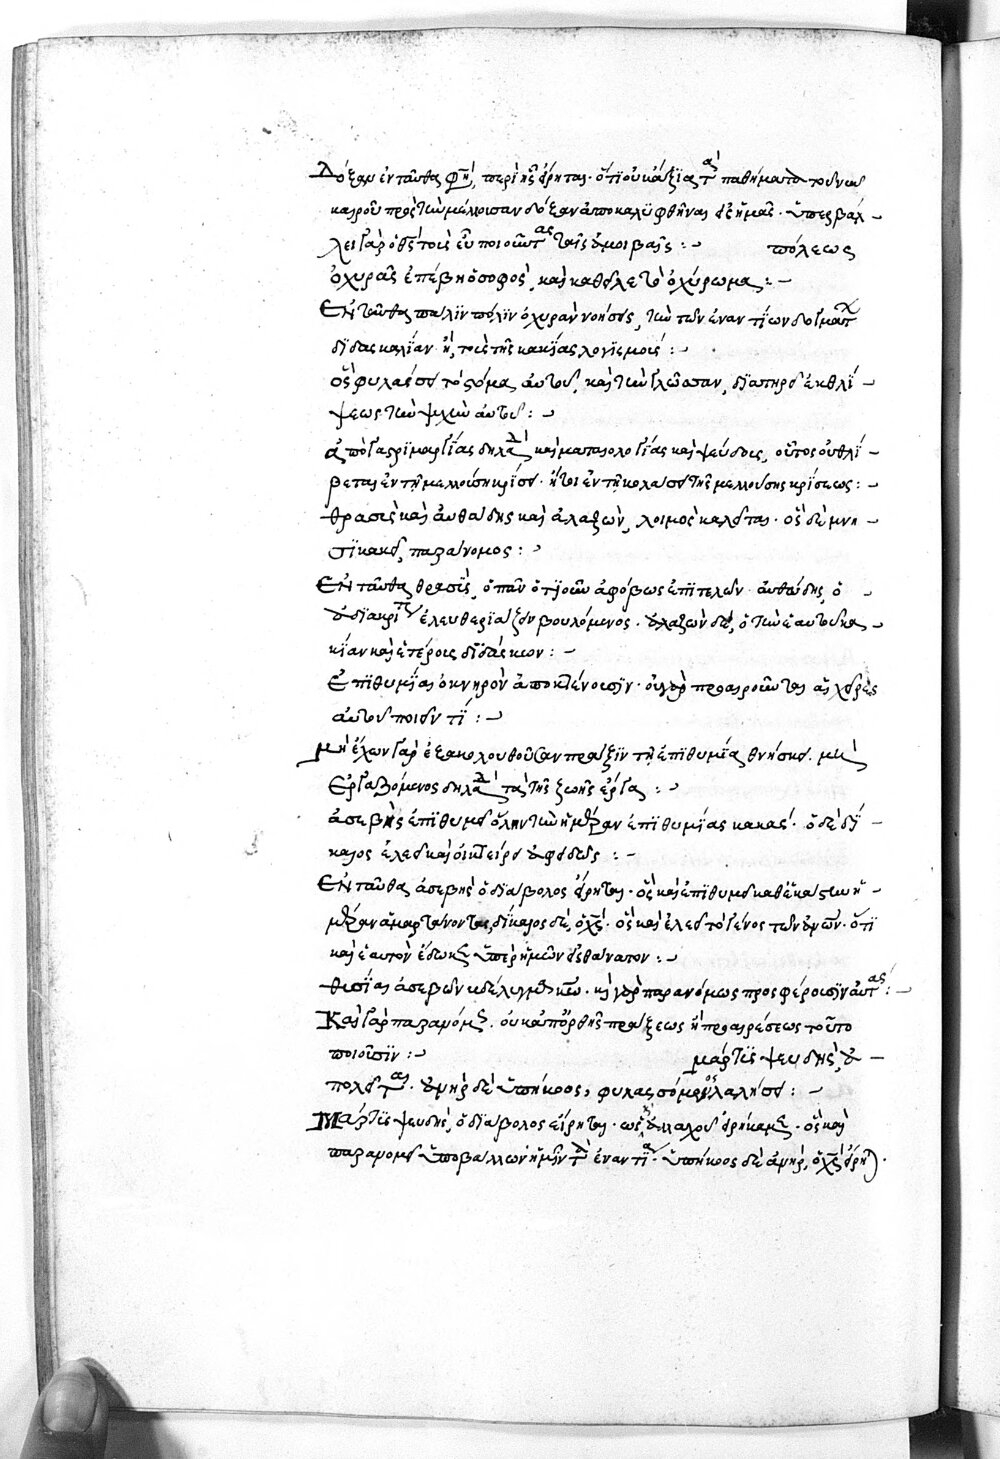 Δόξαν ἐνταῦθα φησὶ, περὶ ἧς εἴρηται· ὅτι οὐκ ἄξια τὰ παθήματα τοῦ νῦν
καιροῦ πρὸς τὴν μέλλουσαν δόξαν ἀποκαλυφθῆναι εἰς ἡμᾶς· ὑπερβάλ –
λει γὰρ ὁ θεὸς τοὺς εὖ ποιοῦντας ταῖς ἀμοιβαῖς :– πόλεως
ὀχυρᾶς ἐπέβη ὁ σοφὸς, καὶ καθεῖλε τὸ ὀχύρωμα :–
Ἐνταῦθα πάλιν πόλιν ὀχυρὰν νοήσεις, τὴν τῶν ἐναντίων δογμάτων
διδασκαλίαν ἢ, τοὺς τῆς κακίας λογισμούς :–
ὃς φυλάσσει τὸ στόμα αὐτοῦ, καὶ τὴν γλῶσσαν, διατηρεῖ ἐκ θλί –
ψεως τὴν ψυχὴν αὐτοῦ :–
ἀπὸ γαστριμαργίας δηλαδὴ καὶ ματαιολογίας καὶ ψεύδους, οὗτος οὐ θλί –
βεται ἐν τῇ μελλούσῃ κρίσει· ἤτοι ἐν τῇ κολάσει τῆς μελλούσης κρίσεως :–
θρασὺς καὶ αὐθάδης καὶ ἀλαζὼν, λοιμὸς καλεῖται· ὃς δὲ μνη –
σικακεῖ, παράνομος :–
Ἐνταῦθα θρασὺς, ὁ πᾶν ὁτιοῦν ἀφόβως ἐπιτελῶν· αὐθάδης, ὁ –
ἀδιακρίτως ἐλευθεριάζειν βουλόμενος· ἀλαζὼν δὲ, ὁ τὴν ἑαυτοῦ κα –
κίαν καὶ ἑτέροις διδάσκων :–
Ἐπιθυμίαι ὀκνηρὸν ἀποκτένουσιν· οὐ γὰρ προαιροῦνται αἱ χεῖρες
αὐτοῦ ποιεῖν τί :–
μὴ ἔχων γὰρ ἐξακολουθοῦσαν πρᾶξιν τῇ ἐπιθυμίᾳ θνήσκει. μὴ
ἐργαζόμενος δηλαδὴ τὰ τῆς ζωῆς ἔργα :–
ἀσεβὴς ἐπιθυμεῖ ὅλην τὴν ἡμέραν ἐπιθυμίας κακάς· ὁ δὲ δί –
καιος ἐλεεῖ καὶ οἰκτείρει ἀφειδῶς :–
Ἐνταῦθα ἀσεβὴς ὁ διάβολος εἴρηται· ὃς καὶ ἐπιθυμεῖ καθ' ἑκάστην ἡ –
μέραν ἁμαρτάνοντας, δίκαιος δὲ, ὁ χριστὸς· ὃς καὶ ἐλεεῖ τὸ γένος τῶν ἀνθρώπων· ὅτι
καὶ ἑαυτὸν ἔδωκεν ὑπὲρ ἡμῶν εἰς θάνατον :–
θυσίαι ἀσεβῶν βδέλυγμα κυρίῳ· καὶ γὰρ παρανόμως προσφέρουσιν αὐτάς :–
Καὶ γὰρ παρανόμως. οὐκ ἀπ' ὀρθῆς πράξεως ἢ προαιρέσεως τοῦτο
ποιοῦσιν :– μάρτυς ψευδὴς ἀ –
πολεῖται· ἀνὴρ δὲ ὑπήκοος, φυλασσόμενος λαλήσει :–
Μάρτυς ψευδὴς, ὁ διάβολος εἴρηται· ὡς ἀλλαχοῦ εἰρήκαμεν· ὃς καὶ
παρανομεῖ ὑποβάλλων ἡμῖν τὰ ἐναντία· ὑπήκοος δὲ ἀνὴρ, ὁ χριστὸς εἴρηται·